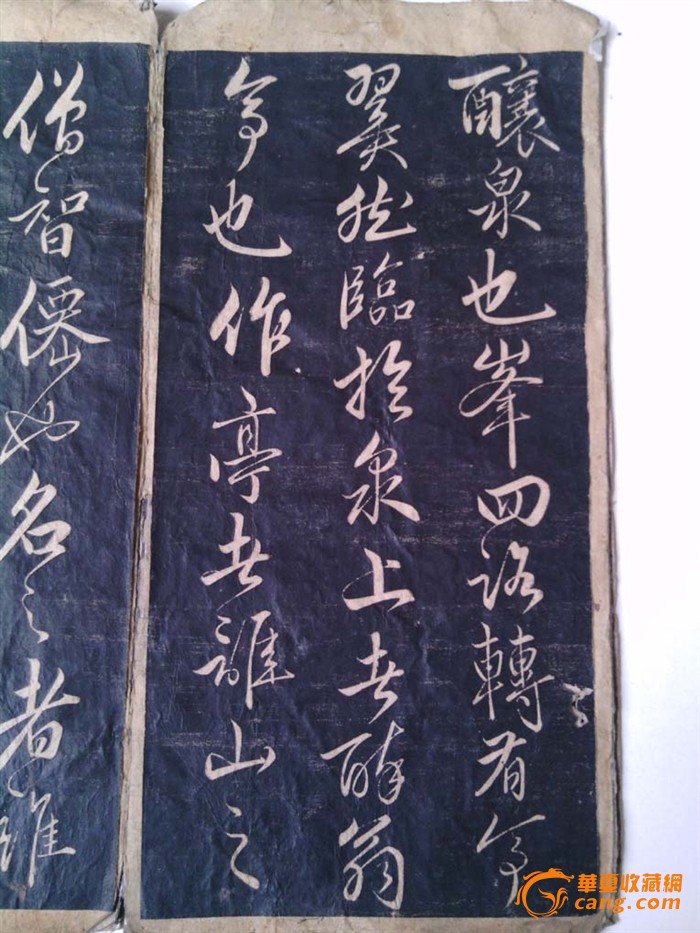 釀泉也峯回路轉有亭
翼然臨於泉上者醉翁
亭也作亭者誰山之
僧智僊也名之者誰
華夏收藏網
cang.com